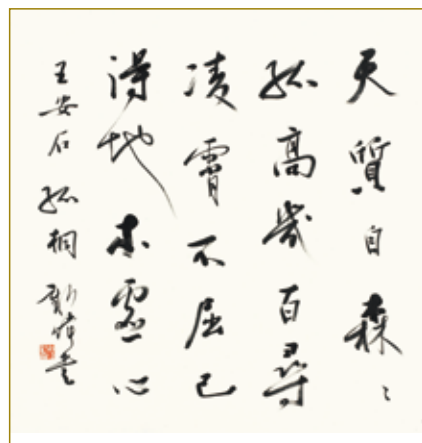 天質自森〻
孤高幾百尋
凌霄不屈己
得地本虛心
王安石 孤桐